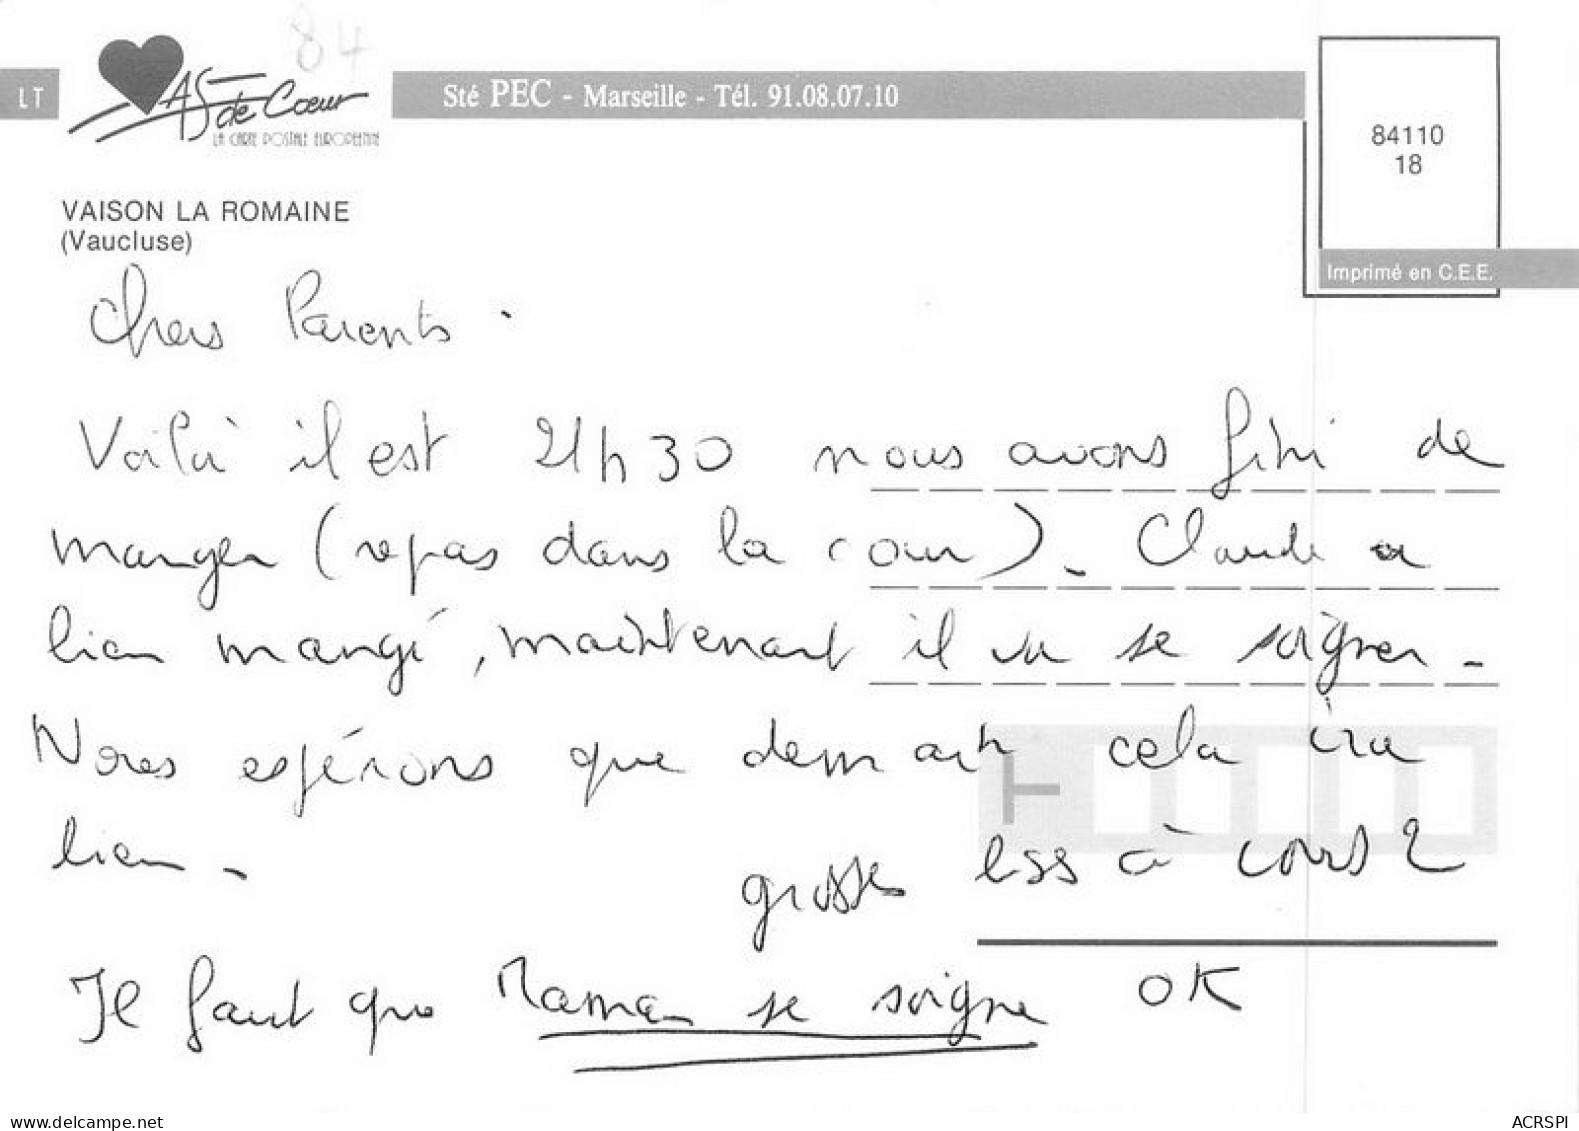 84
LT
AS de Cœur
LA CARTE POSTALE EUROPEENNE
Sté PEC - Marseille - Tél. 91.08.07.10
84110
18
VAISON LA ROMAINE
(Vaucluse)
Imprimé en C.E.E.
Chers Parents.
Voilà il est 21h30 nous avons fini de
manger (repas dans la cour). Claude a
bien mangé, maintenant il va se soigner.
Nous espérons que demain cela ira
bien.
grosses à
Il faut que Maman se soigne OK
www.delcampe.net
ACRSPI